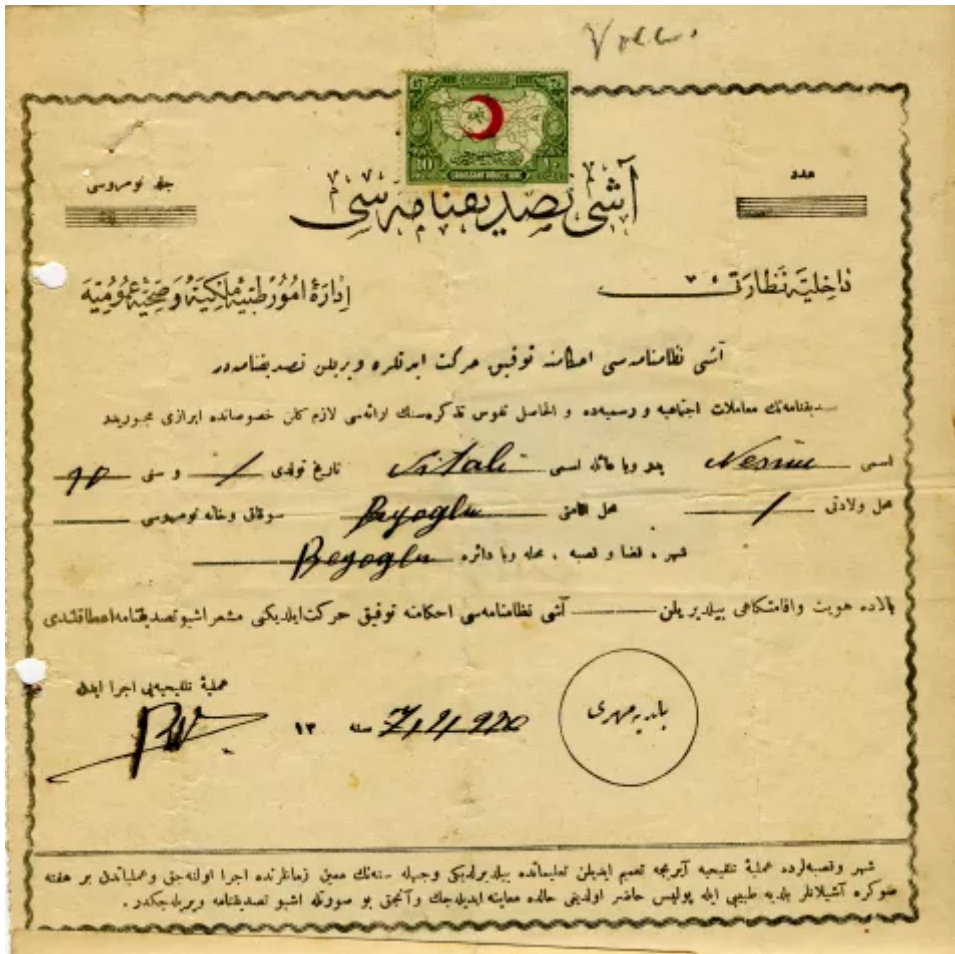 عدد
جلد نومروسی
آشی تصدیقنامه‌سی
داخلیه نظارتی
اداره‌ٔ امور طبیه ملکیه و صحیه عمومیه
آشی نظامنامه‌سی احکامنه توفیق حرکت ایدنلره ویریلن تصدیقنامه‌در
معاملات اجتماعیه و رسمیه‌ده و الحاصل نفوس تذکره‌سنك ارائه‌سی لازم کلن خصوصاتده ابرازی مجبوریدر
اسمی Nesim پدر ویا عائله اسمی Vitali تاریخ تولدی / و سنی
محل ولادتی / محل اقامتی Beyoglu سوقاق و خانه نومروسی
شهر ، قضا و قصبه ، محله ویا دائره Beyoglu
بالاده هویت و اقامتکاهی بیلدیریلن آشی نظامنامه‌سی احکامنه توفیق حرکت ایلدیکنی مشعر اشبو تصدیقنامه اعطا قلندی
عملیهٔ تلقیحیه‌یی اجرا ایدن
سنه ١٣
بلدیه مهری
شهر وقصبه‌لرده عملیهٔ تلقیحیه آیریجه تعمیم ایدیلن تعلیماتده بیلدیرلدیکی وجهله سنه‌نك معین زمانلرنده اجرا اولنه‌جق وعملیاتدن بر هفته
صوکره آشیلانلر بلدیه طبیبی ایله پولیس حاضر اولدیغی حالده معاینه ایدیله‌جك وآنجق بو صورتله اشبو تصدیقنامه ویریله‌جکدر .